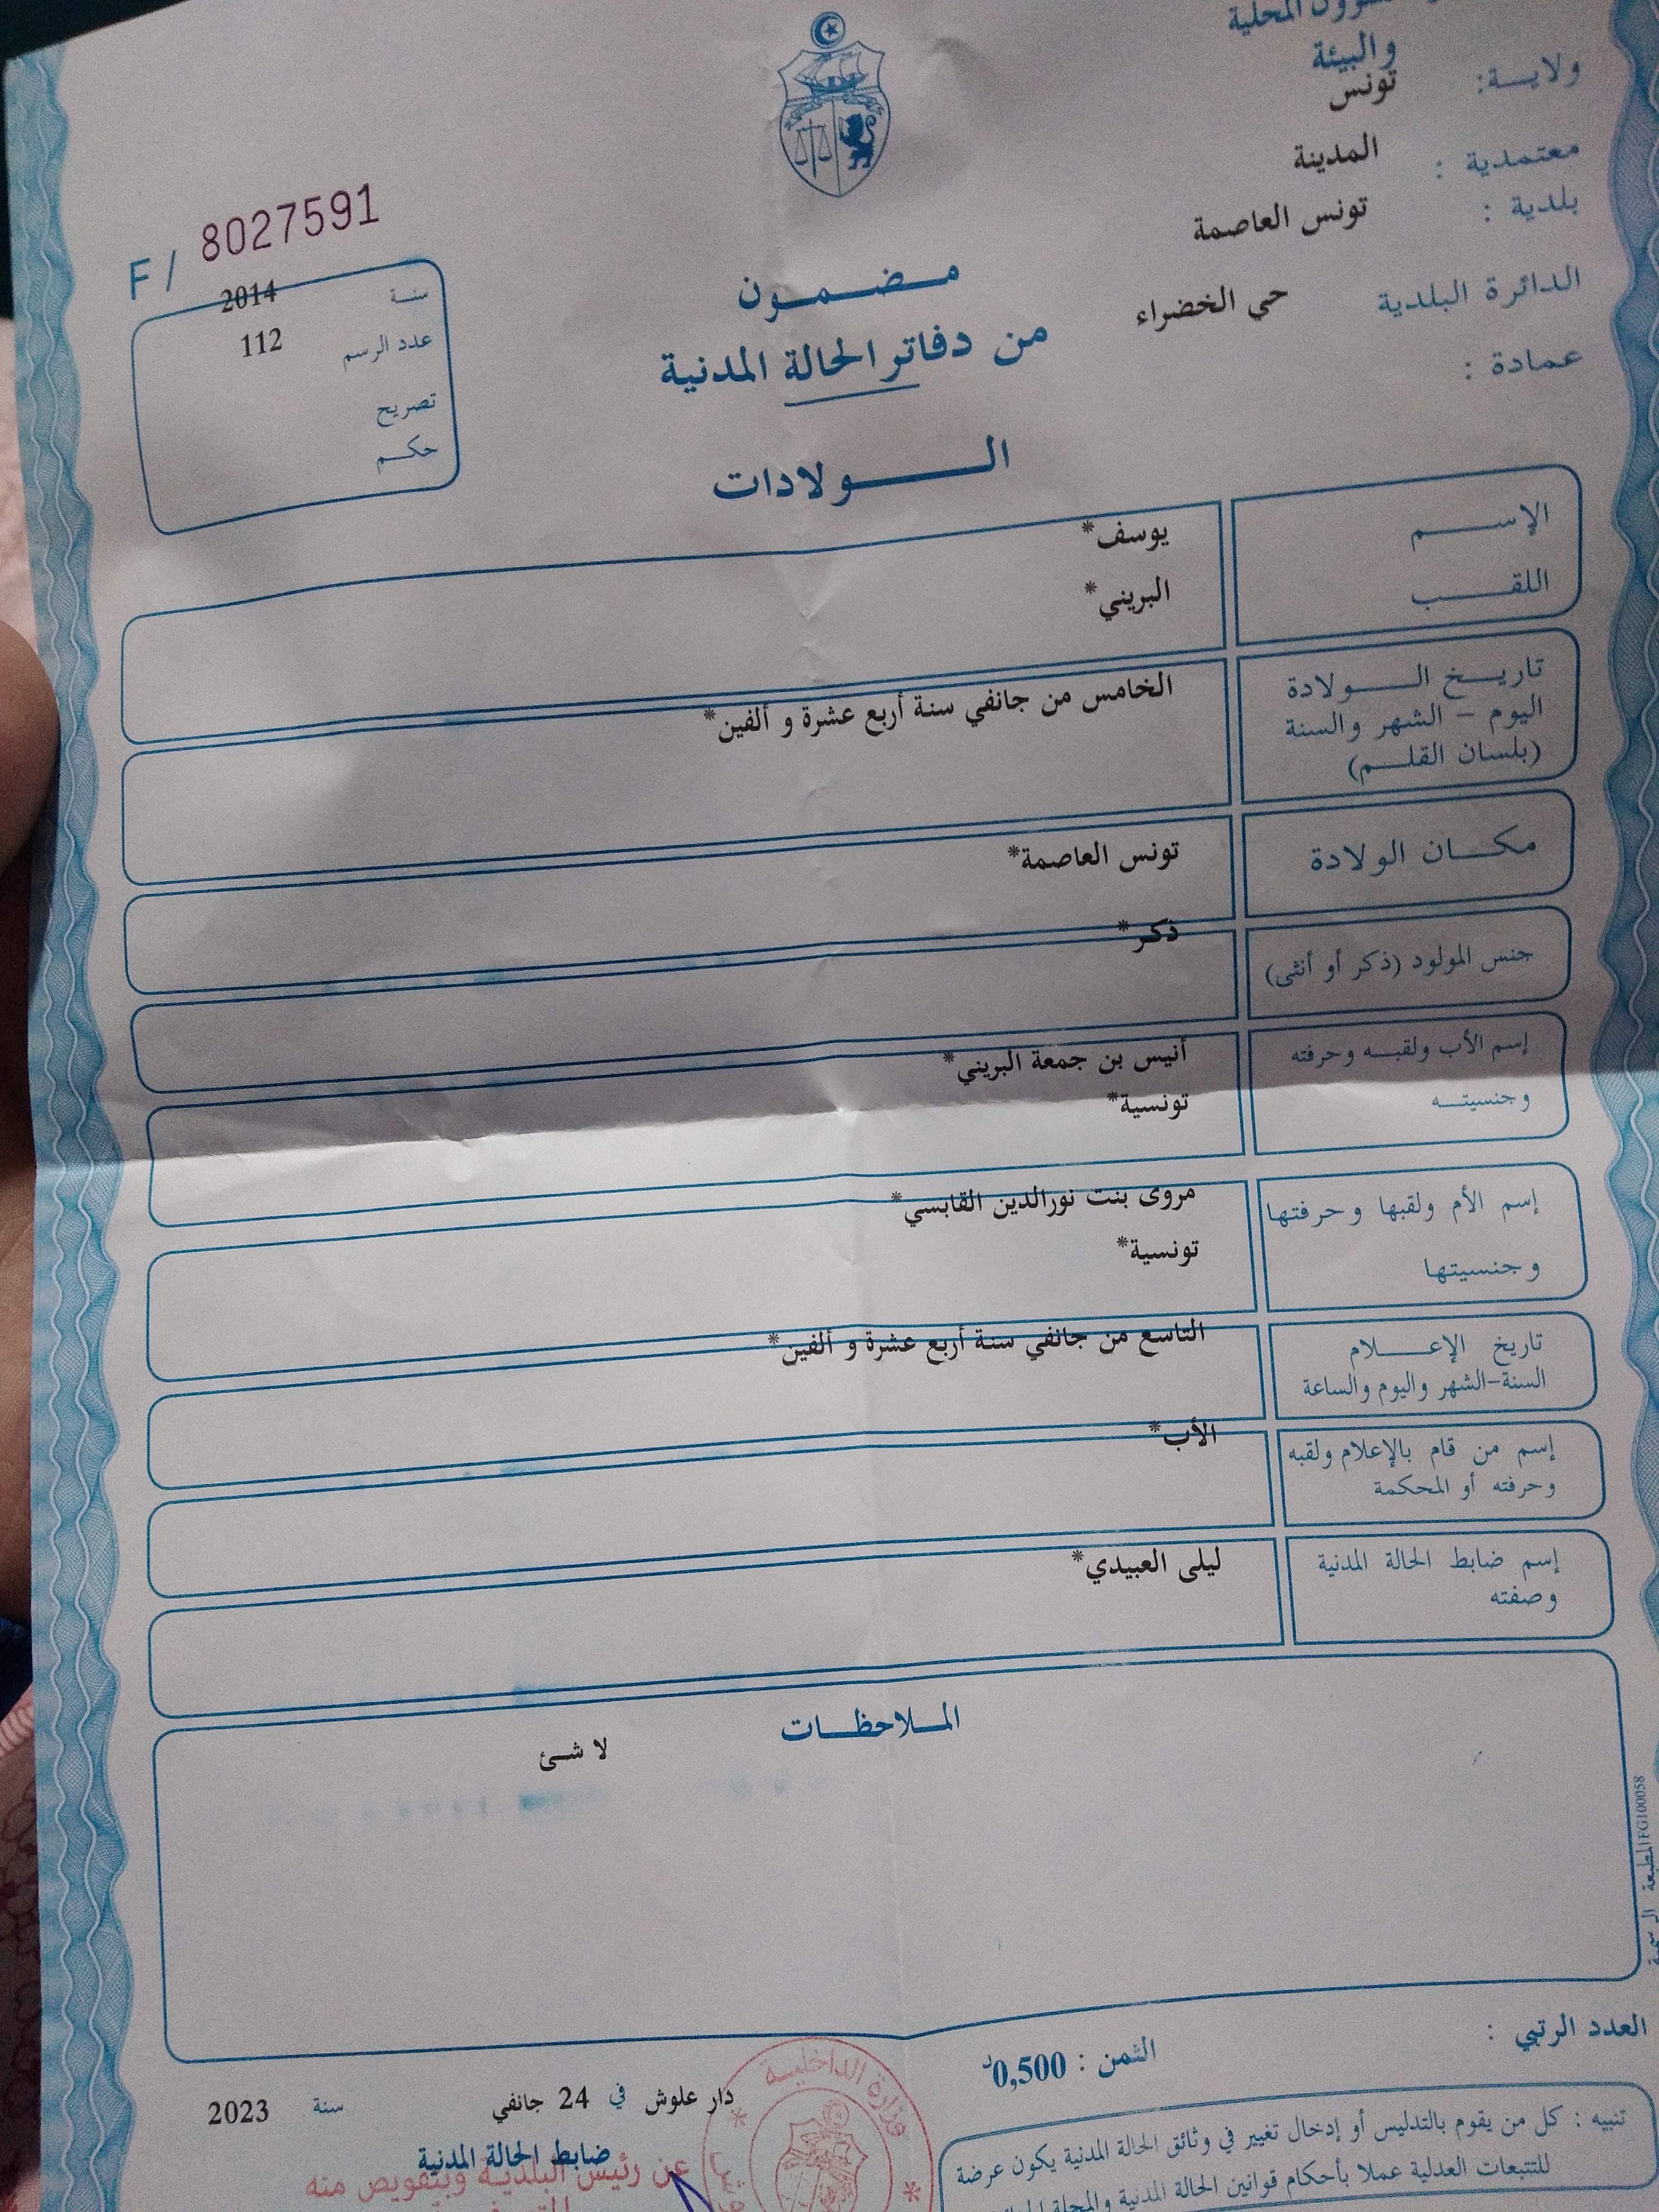 والبيئة
ولايـــة: تونس
معتمدية : المدينة
بلدية : تونس العاصمة
الدائرة البلدية حي الخضراء
عمادة :
F/ 8027591
سنة 2014
عدد الرسم 112
تصريح
حكم
مضمون
من دفاتر الحالة المدنية
الولادات
الإسم يوسف*
اللقب البريني*
تاريخ الولادة
اليوم - الشهر والسنة
(بلسان القلم)
الخامس من جانفي سنة أربع عشرة و ألفين*
مكان الولادة تونس العاصمة*
جنس المولود (ذكر أو أنثى) ذكر*
إسم الأب ولقبه وحرفته أنيس بن جمعة البريني*
وجنسيته تونسية*
إسم الأم ولقبها وحرفتها مروى بنت نورالدين القابسي*
وجنسيتها تونسية*
تاريخ الإعلام
السنة-الشهر واليوم والساعة
التاسع من جانفي سنة أربع عشرة و ألفين*
إسم من قام بالإعلام ولقبه
وحرفته أو المحكمة
الأب*
إسم ضابط الحالة المدنية
وصفته
ليلى العبيدي*
الملاحظات
لا شئ
المطبعة الرسمية FG100058
العدد الرتبي :
الثمن : 0,500د
دار علوش في 24 جانفي سنة 2023
ضابط الحالة المدنية
عن رئيس البلدية وبتفويض منه
وزارة الداخلية
تنبيه : كل من يقوم بالتدليس أو إدخال تغيير في وثائق الحالة المدنية يكون عرضة
للتتبعات العدلية عملا بأحكام قوانين الحالة المدنية والمجلة